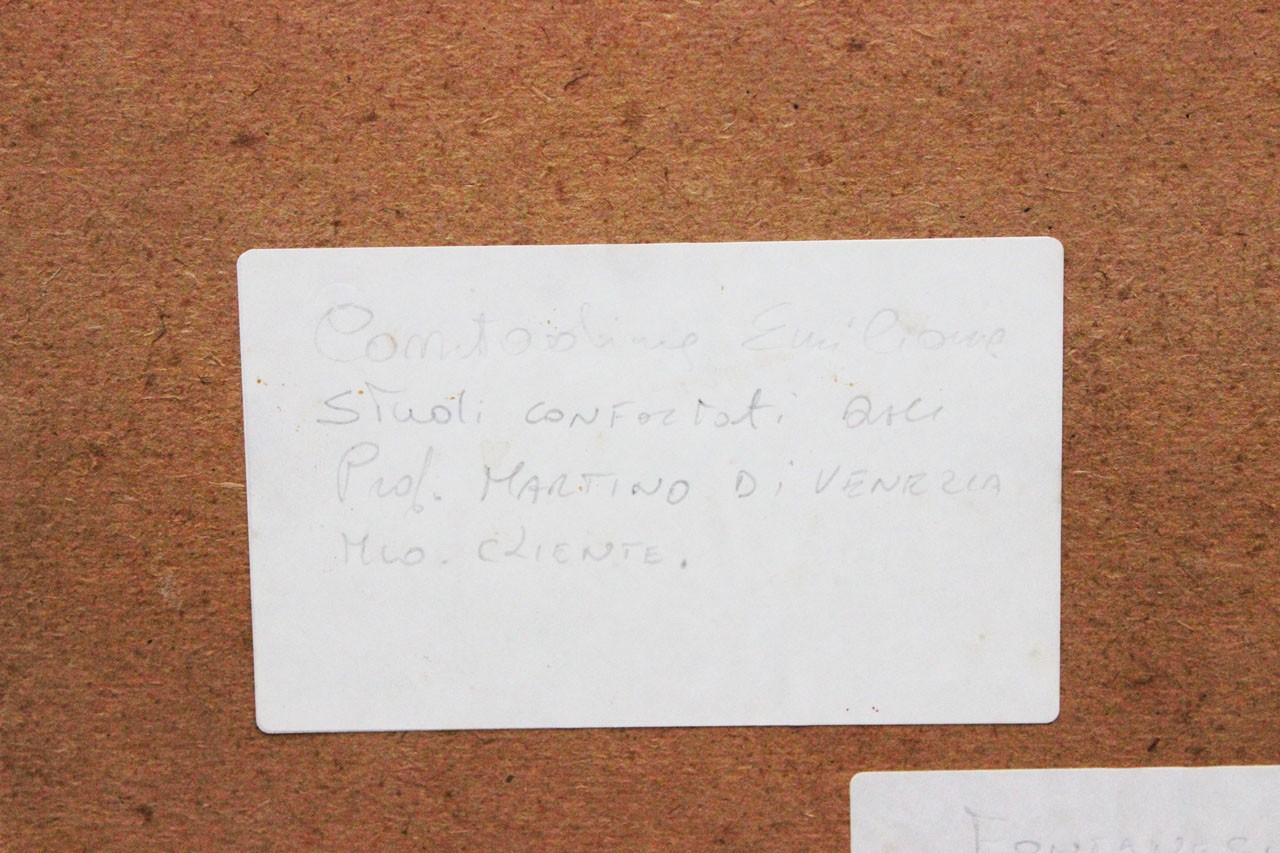 Contadine Emiliane
Studi confortati dal
Prof. MARTINO Di VENEZIA
Mio. CLIENTE.
FONTANESI